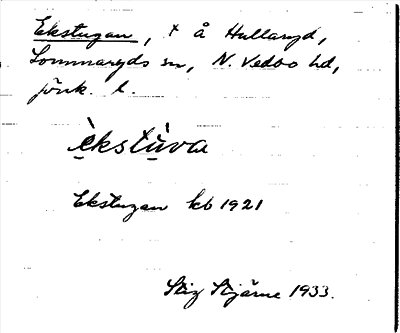 Ekstugan, t å Hullaryd,
Lommaryds sn, N. Vedbo hd,
jönk. l.
èkstùva
Ekstugan kb 1921
Stig Stjärne 1933.